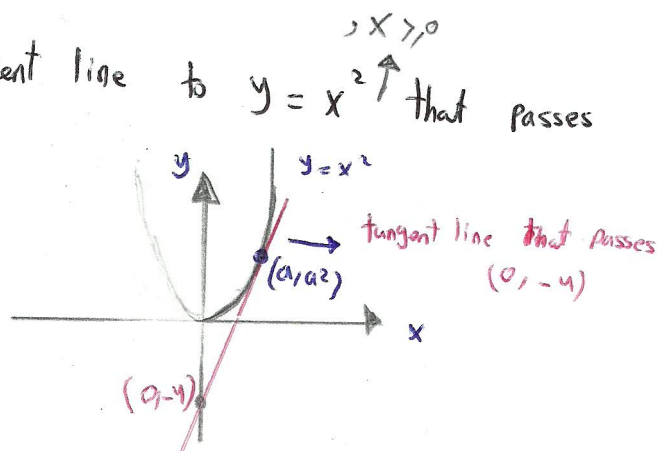 , x ≥ 0
ent line to y = x² that passes
y
y = x²
tangent line that passes
(0, -4)
(a, a²)
x
(0, -4)